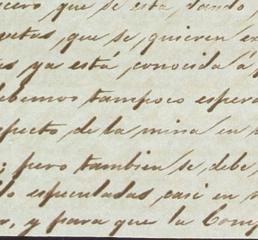 que se está dando
que se quieren
ya está, conocida á
debemos tampoco espera
aspecto de la mina en
; pero tambien se debe
especuladas, casi en
, y para que la Comp